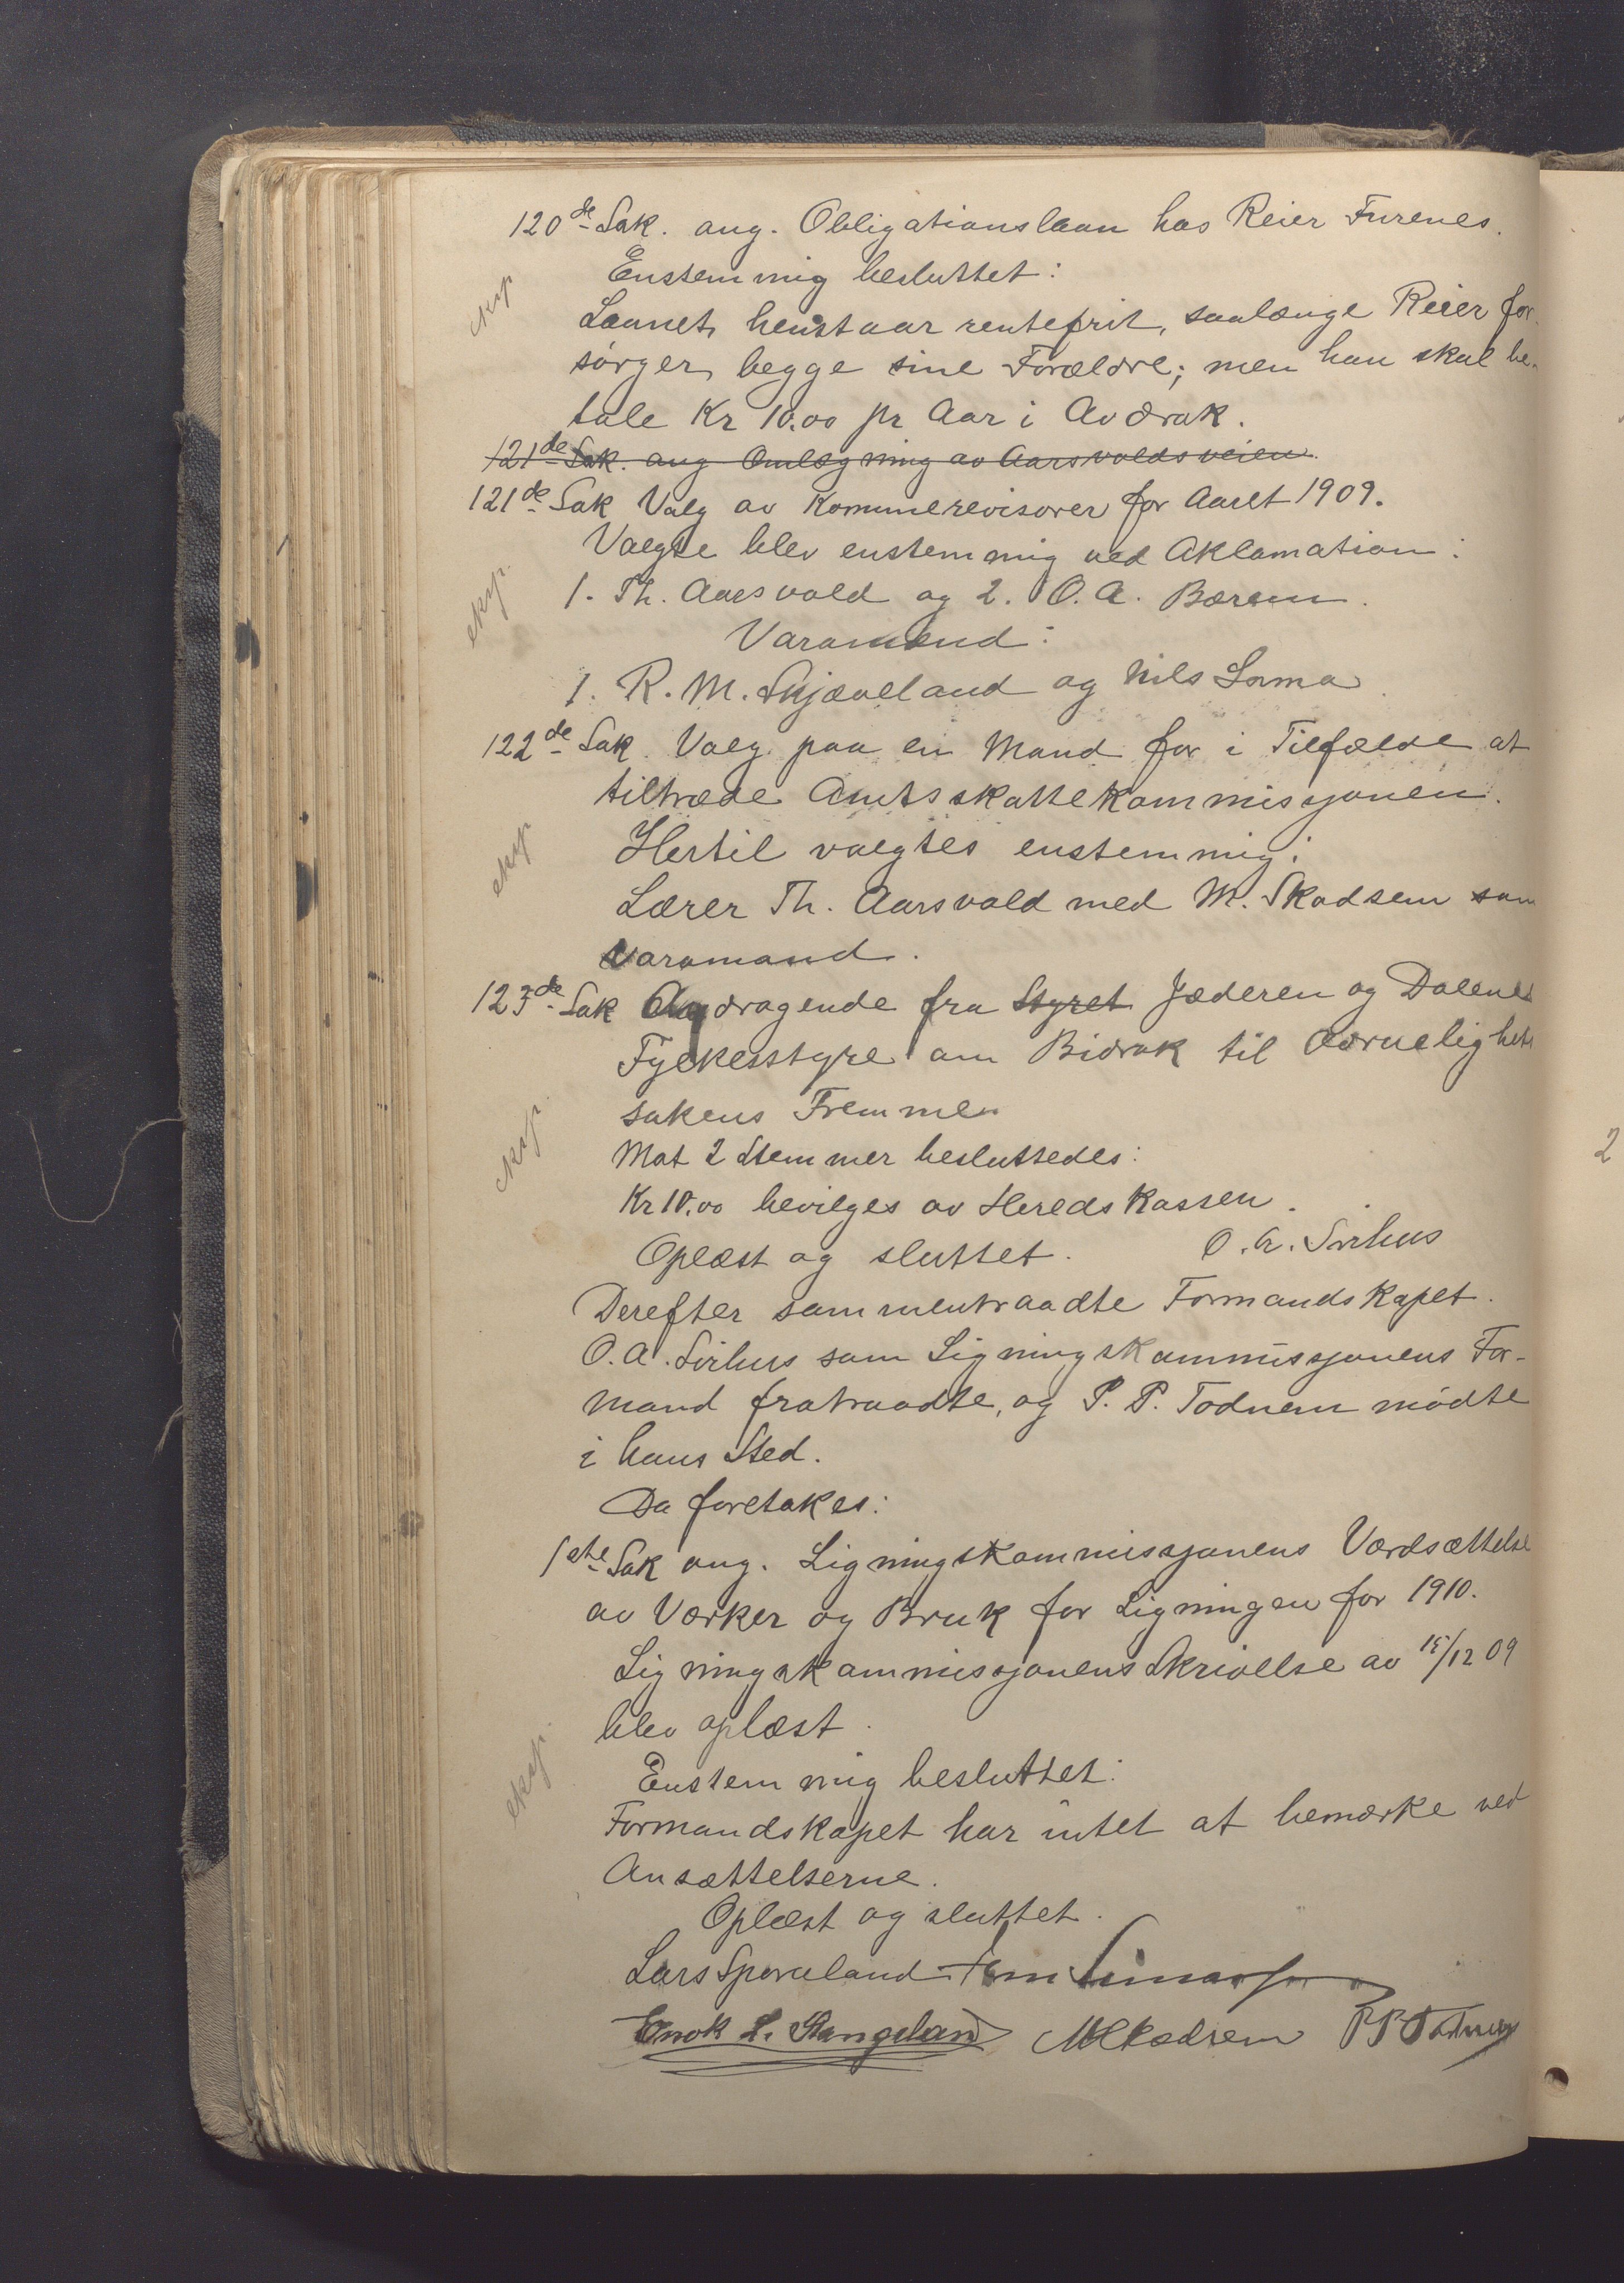 120de Sak. ang. Obligationslaan hos Reier Furenes.
eksp Enstemmig besluttet:
Laanet henstaar rentefrit, saalænge Reier for-
sørger begge sine Forældre; men han skal be-
tale Kr 10.00 pr Aar i Avdrak.
121de Sak. ang Omlægning av Aarsvoldsveien.
121de Sak Valg av Kommunerevisorer for Aaret 1909.
Valgte blev enstemmig ved Aklamation:
eksp. 1. Th. Aarsvold og 2. O. A. Bærem.
Varamænd:
1. R. M. Skjæveland og Nils Loma
122de Sak. Valg paa en Mand for i Tilfælde at
tiltræde Amtsskattekommissjonen.
eksp Hertil valgtes enstemmig:
Lærer Th. Aarsvold med M. Skadsem som
Varamand.
123de Sak Andragende fra Styret Jæderen og Dalenes
Fylkesstyre om Bidrak til Ædruelighets
sakens Fremme
eksp. Mot 2 Stemmer besluttedes:
Kr 10.00 bevilges av Heredskassen.
Oplæst og sluttet. O. A. Sirhus
Derefter sammentraadte Formandskapet.
O. A. Sirhus som Ligningskommissjonens For-
mand fratraadte, og P. P. Todnem mødte
i hans Sted.
Da foretakes:
1ste Sak ang. Ligningskommissjonens Værdsættelse
av Værker og Bruk for Ligningen for 1910.
Ligningskommissjonens Skrivelse av 15/12 09
blev oplæst.
eksp. Enstemmig besluttet:
Formandskapet har intet at bemærke ved
Ansættelserne.
Oplæst og sluttet.
Lars Sporaland
Enok L. Stangeland M Skadsem P P Todnem